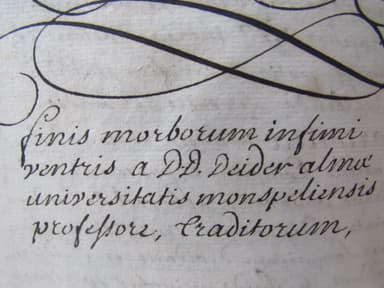 finis morborum infimi
ventris a DD. Deider almæ
universitatis monspeliensis
professore, traditorum,